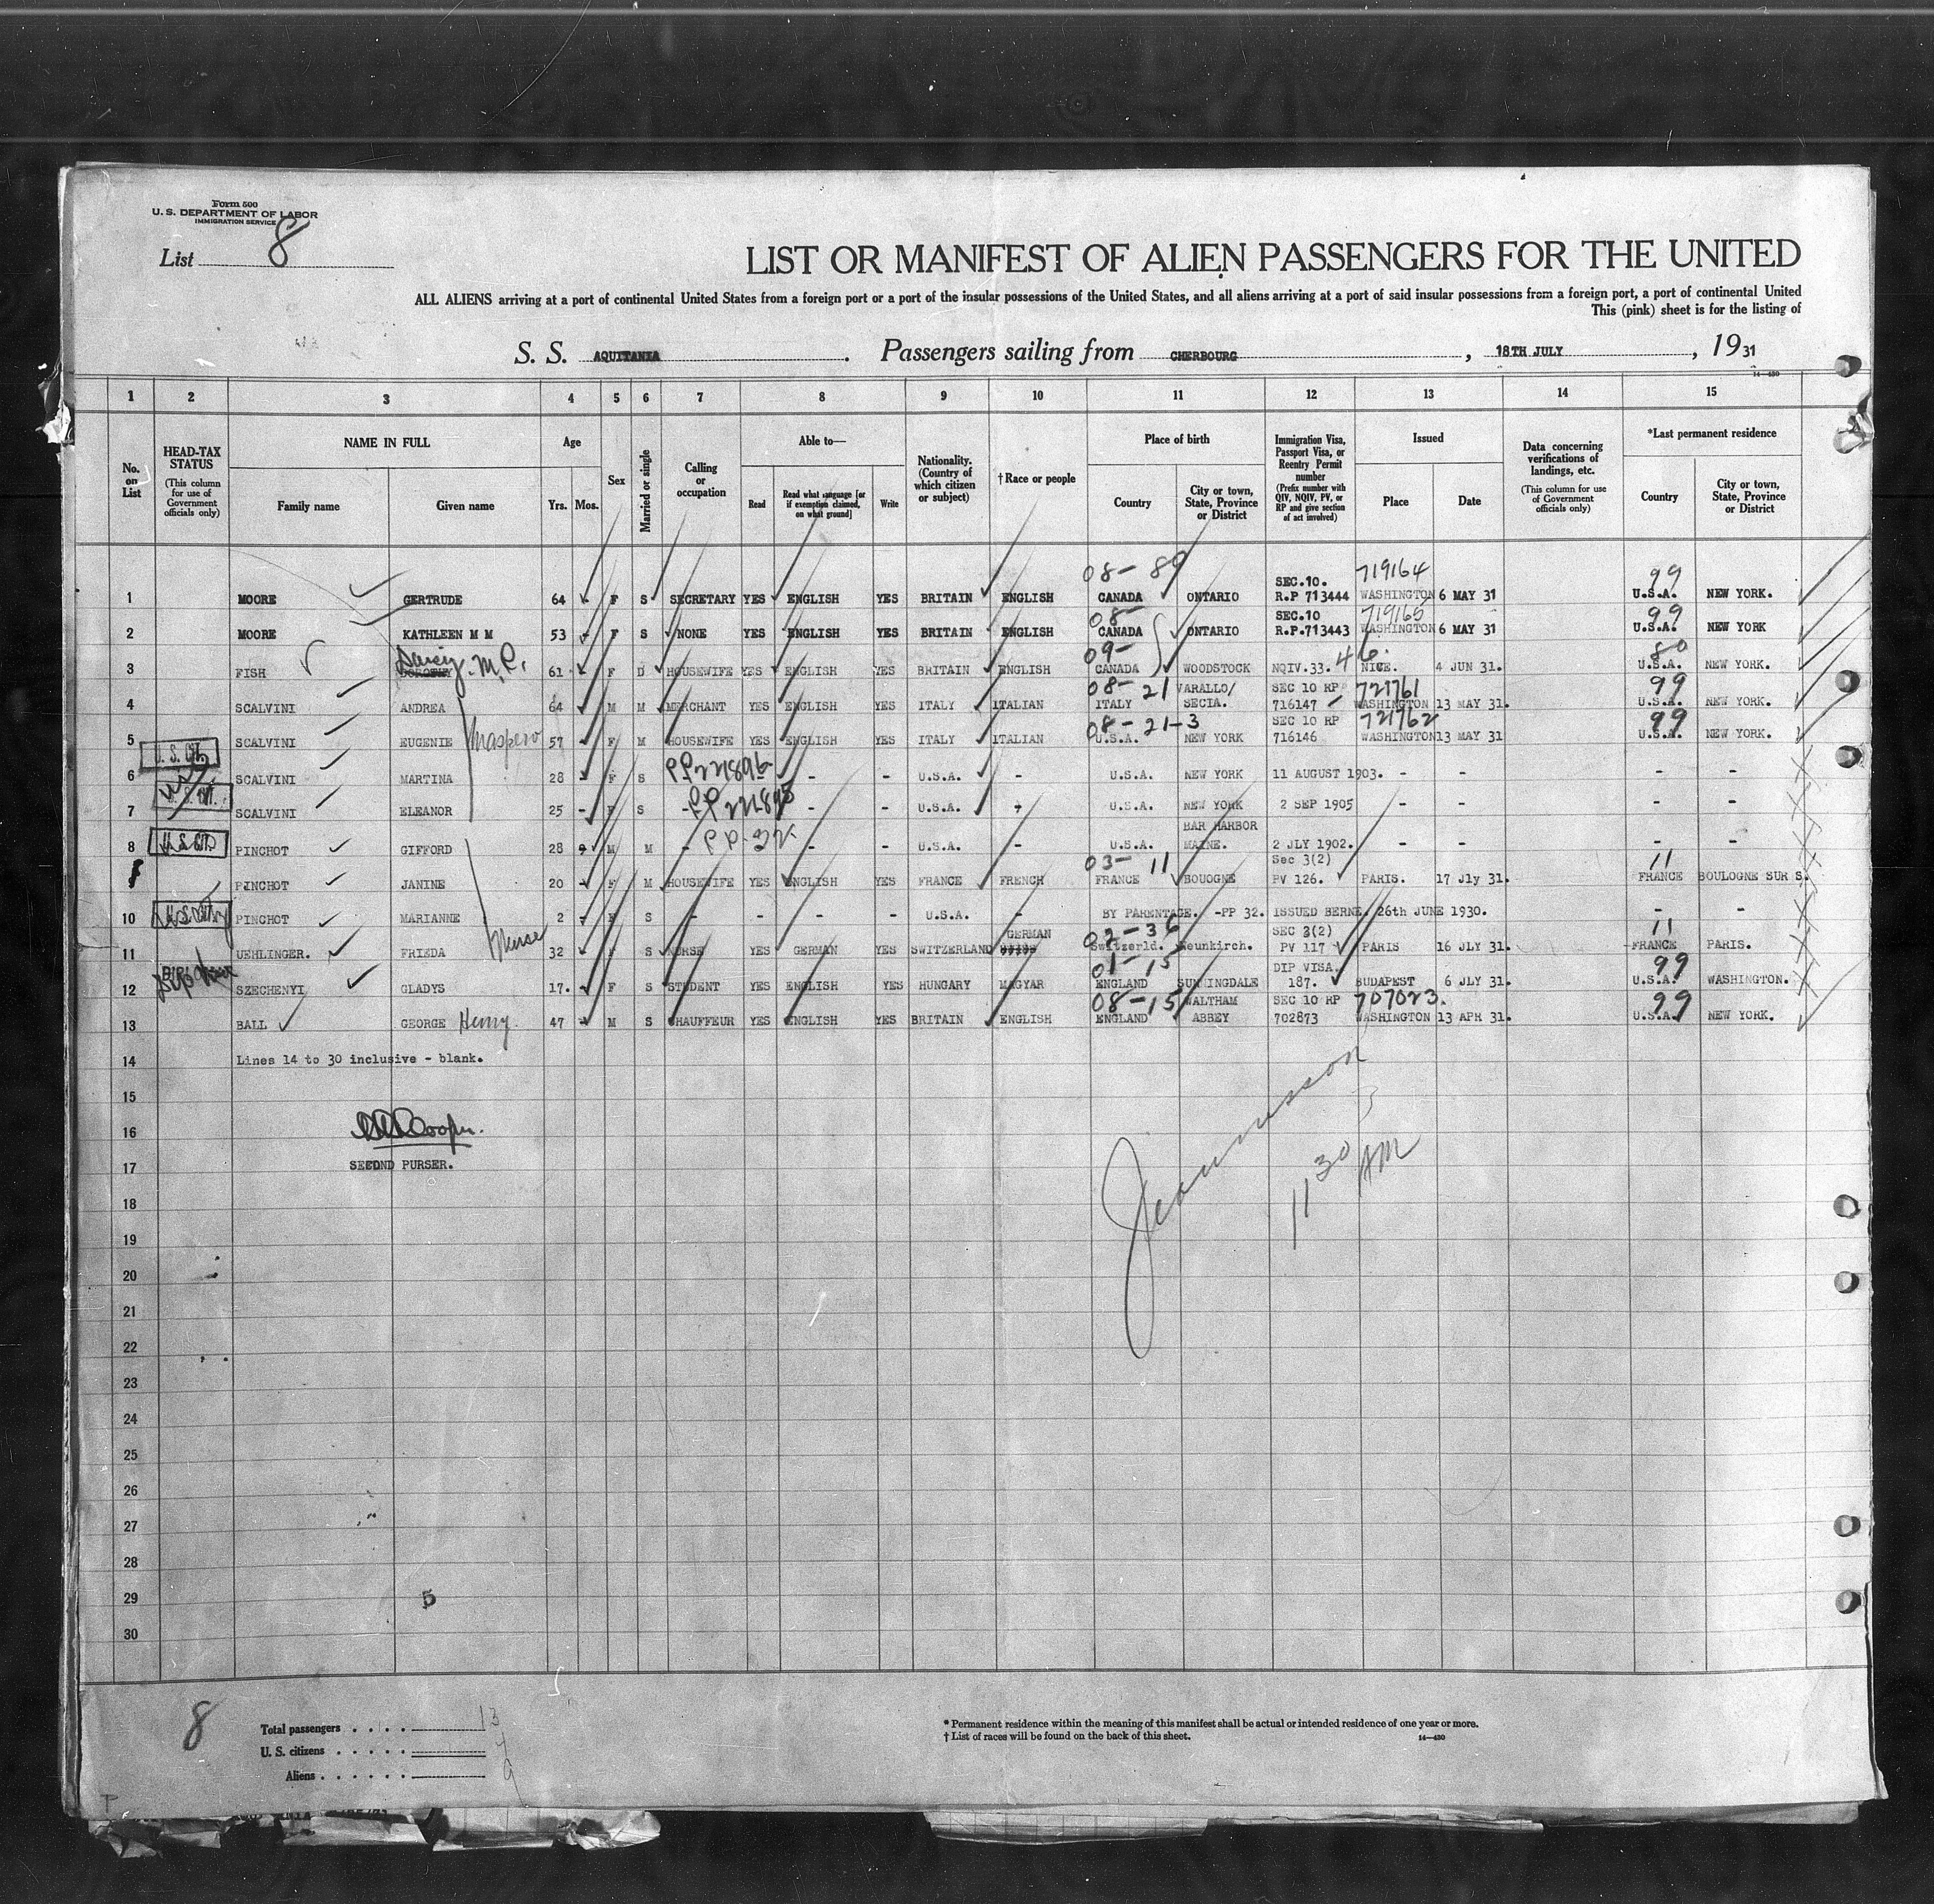 Form 500
U. S. DEPARTMENT OF LABOR
IMMIGRATION SERVICE
List 8
LIST OR MANIFEST OF ALIEN PASSENGERS FOR THE UNITED
ALL ALIENS arriving at a port of continental United States from a foreign port or a port of the insular possessions of the United States, and all aliens arriving at a port of said insular possessions from a foreign port, a port of continental United
This (pink) sheet is for the listing of
S. S. AQUITANIA . Passengers sailing from CHERBOURG , 18TH JULY , 1931
14—430
1 2 3 4 5 6 7 8 9 10 11 12 13 14 15
No. on List
HEAD-TAX STATUS (This column for use of Government officials only)
NAME IN FULL Family name Given name
Age Yrs. Mos.
Sex
Married or single
Calling or occupation
Able to— Read Read what language [or if exemption claimed, on what ground] Write
Nationality. (Country of which citizen or subject)
† Race or people
Place of birth Country City or town, State, Province or District
Immigration Visa, Passport Visa, or Reentry Permit number (Prefix number with QIV, NQIV, PV, or RP and give section of act involved)
Issued Place Date
Data concerning verifications of landings, etc. (This column for use of Government officials only)
*Last permanent residence Country City or town, State, Province or District
08- 719164 99
SEC.10.
1 MOORE GERTRUDE 64 - F S SECRETARY YES ENGLISH YES BRITAIN ENGLISH CANADA ONTARIO R.P 713444 WASHINGTON 6 MAY 31 U.S.A. NEW YORK.
08- SEC.10 719165 99
2 MOORE KATHLEEN M M 53 - F S NONE YES ENGLISH YES BRITAIN ENGLISH CANADA ONTARIO R.P.713443 WASHINGTON 6 MAY 31 U.S.A. NEW YORK
Daisy. M.P. 09- 46. 80
3 FISH DOROTHY 61 F D HOUSEWIFE YES ENGLISH YES BRITAIN ENGLISH CANADA WOODSTOCK NQIV.33. NICE. 4 JUN 31. U.S.A. NEW YORK.
08- 21 VARALLO/ SEC 10 RP 721761 99
4 SCALVINI ANDREA 64 M M MERCHANT YES ENGLISH YES ITALY ITALIAN ITALY SECIA. 716147 WASHINGTON 13 MAY 31. U.S.A. NEW YORK.
08-21-3 SEC 10 RP 721762 99
5 SCALVINI EUGENIE Maspero 57 F M HOUSEWIFE YES ENGLISH YES ITALY ITALIAN U.S.A. NEW YORK 716146 WASHINGTON 13 MAY 31 U.S.A. NEW YORK.
U. S. CIT. PP221896
6 SCALVINI MARTINA 28 - F S - - U.S.A. - U.S.A. NEW YORK 11 AUGUST 1903. - - - -
U. S. CIT. PP 221895
7 SCALVINI ELEANOR 25 - F S - - - U.S.A. - U.S.A. NEW YORK 2 SEP 1905 - - - -
U. S. CIT. PP. 32 BAR HARBOR
8 PINCHOT GIFFORD 28 M M - - - - U.S.A. - U.S.A. MAINE. 2 JLY 1902. - - - -
03- 11 Sec 3(2) 11
PINCHOT JANINE 20 - F M HOUSEWIFE YES ENGLISH YES FRANCE FRENCH FRANCE BOUOGNE PV 126. PARIS. 17 Jly 31. FRANCE BOULOGNE SUR S.
10 PINCHOT MARIANNE 2 - F S - - - - U.S.A. - BY PARENTAGE. -PP 32. ISSUED BERNE. 26th JUNE 1930. - -
GERMAN 02-36 SEC 3(2) 11
11 UEHLINGER. FRIEDA Nurse 32 F S NURSE YES GERMAN YES SWITZERLAND Switzerld. Neunkirch. PV 117 PARIS 16 JLY 31. FRANCE PARIS.
01-15 DIP VISA. 99
12 SZECHENYI GLADYS 17. - F S STUDENT YES ENGLISH YES HUNGARY MAGYAR ENGLAND SUNNINGDALE 187. BUDAPEST 6 JLY 31. U.S.A. WASHINGTON.
08-15 WALTHAM SEC 10 RP 707023. 99
13 BALL GEORGE Henry. 47 M S CHAUFFEUR YES ENGLISH YES BRITAIN ENGLISH ENGLAND ABBEY 702873 WASHINGTON 13 APR 31. U.S.A. NEW YORK.
14 Lines 14 to 30 inclusive - blank.
15
16 Cooper.
17 SECOND PURSER.
11 30 AM
18
19
20
21
22
23
24
25
26
27
28
29 5
30
8
Total passengers . . . . 13
U. S. citizens . . . . . 4
Aliens . . . . . . 9
* Permanent residence within the meaning of this manifest shall be actual or intended residence of one year or more.
† List of races will be found on the back of this sheet.
14—430